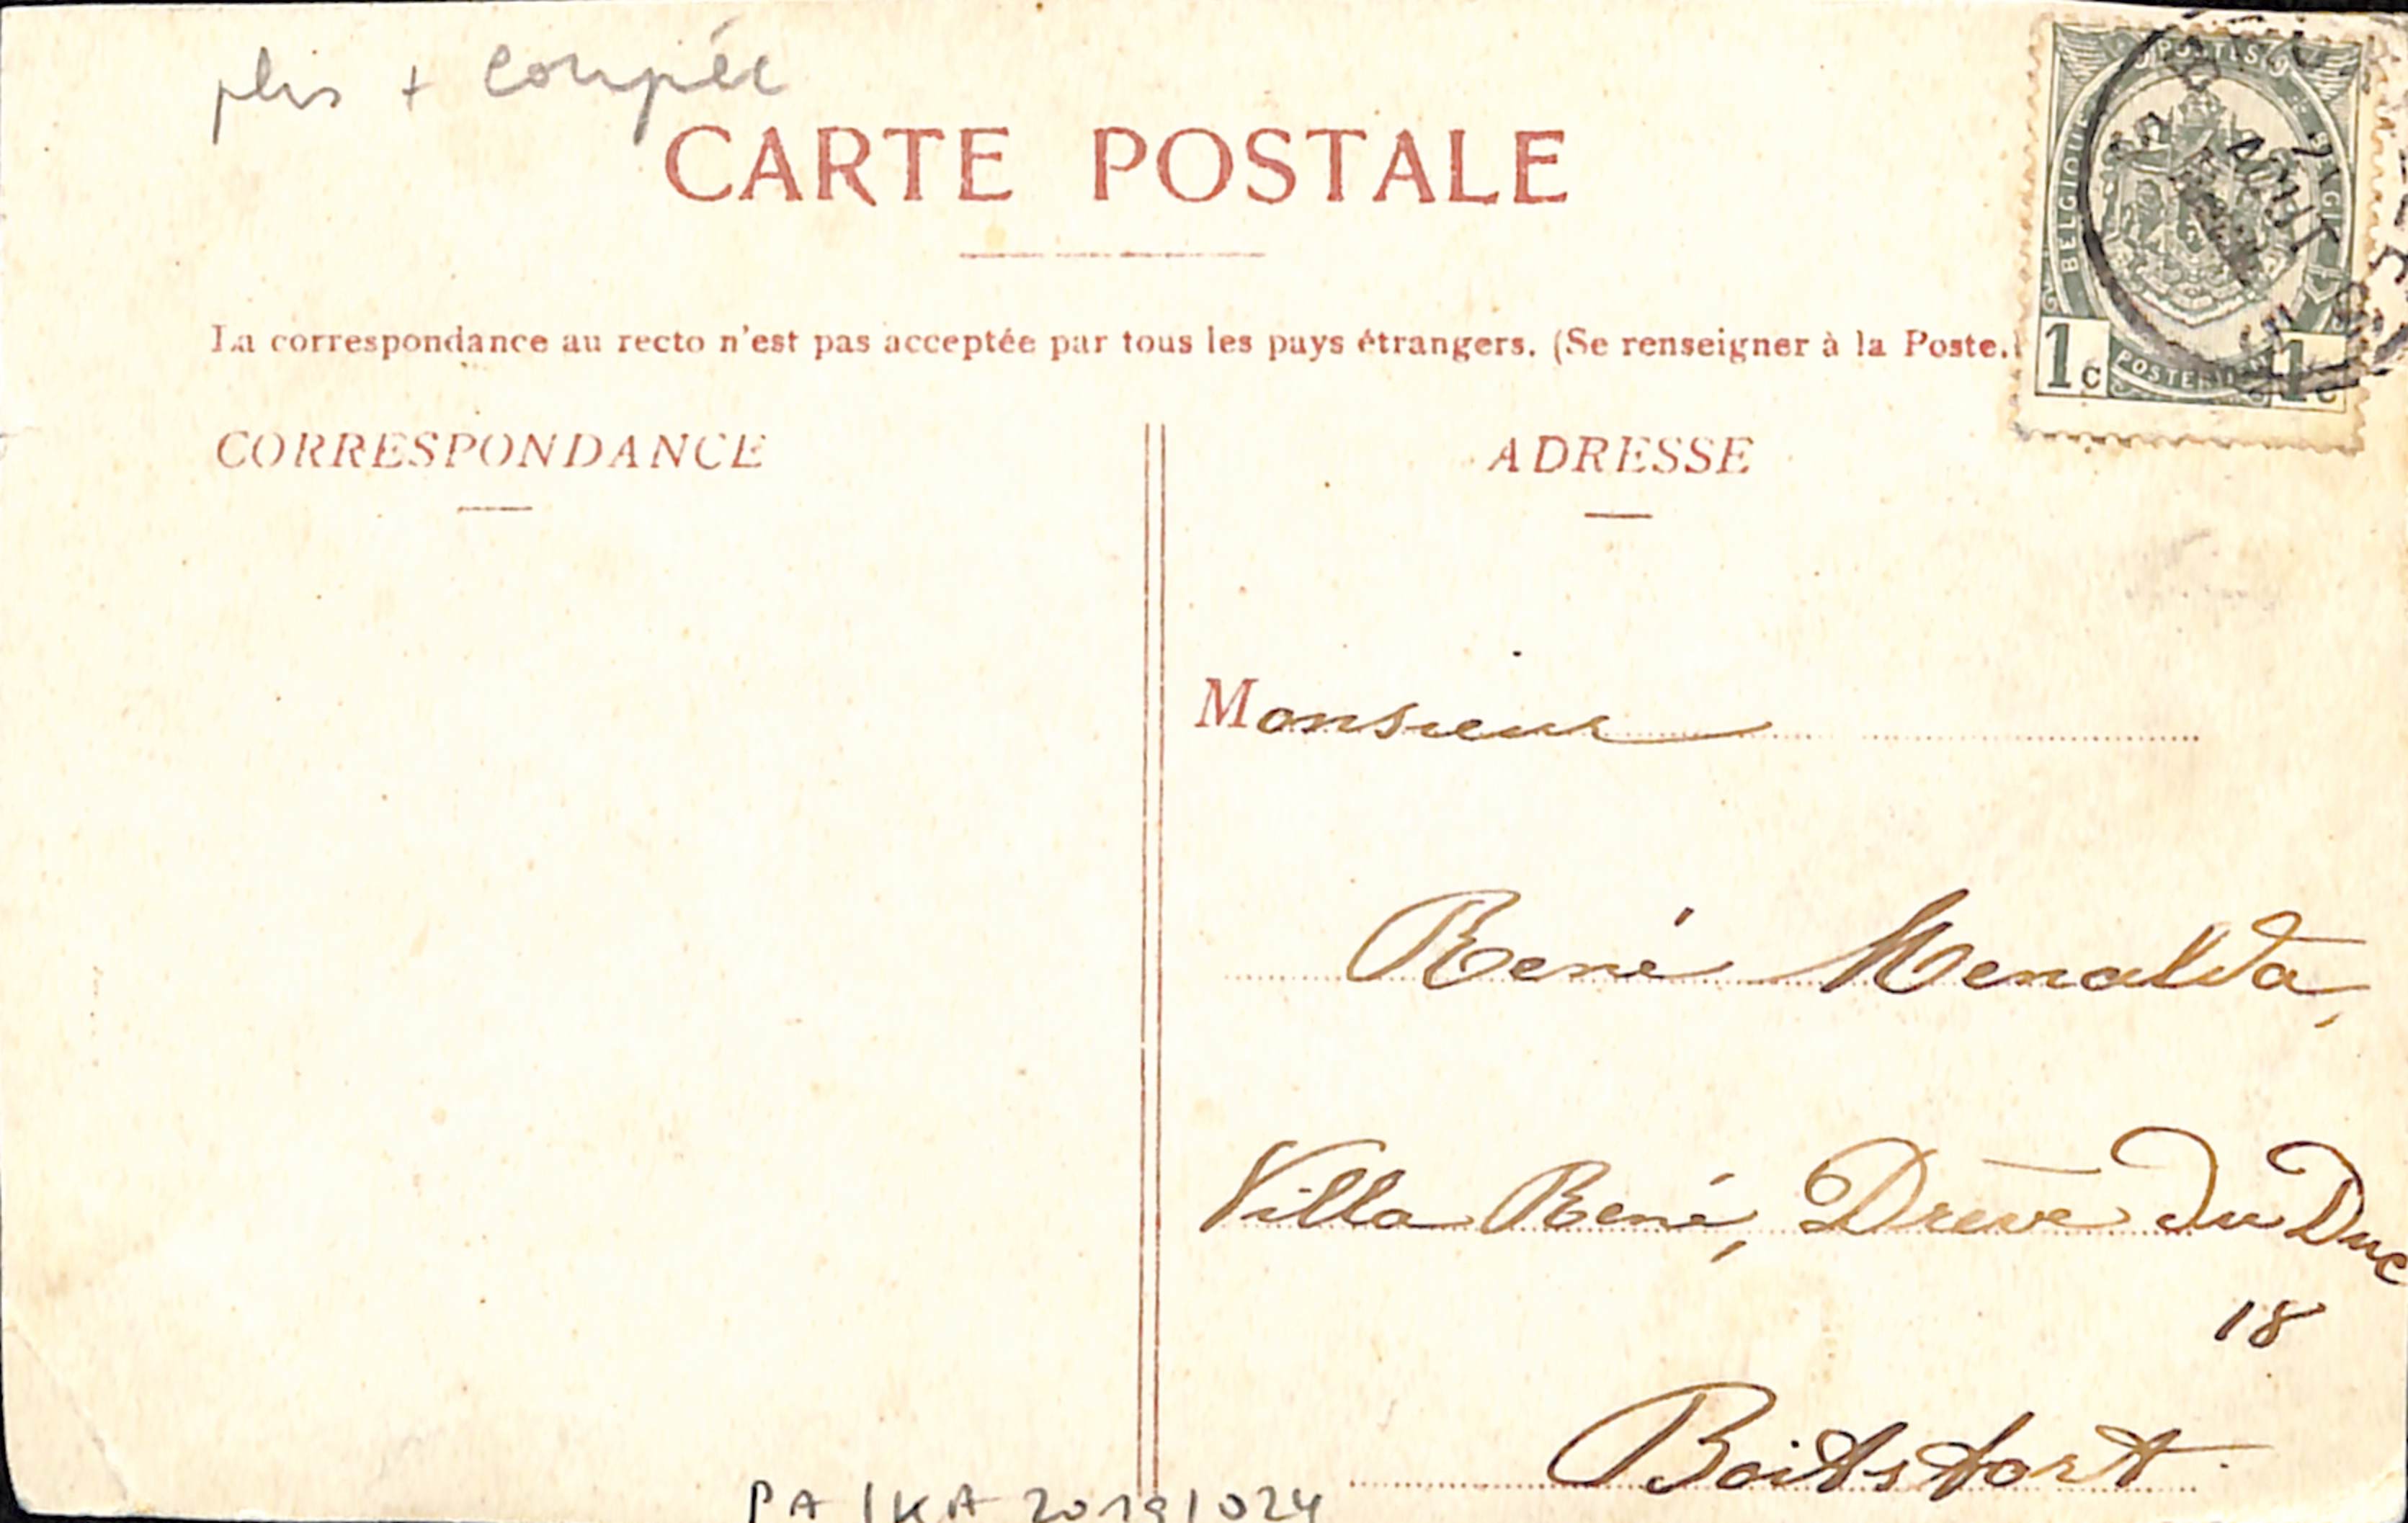 plis + coupée
CARTE POSTALE
La correspondance au recto n'est pas acceptée par tous les pays étrangers. (Se renseigner à la Poste.
POSTES
BELGIQUE
BELGIË
AOUT
1c 1c
POSTERIJEN
CORRESPONDANCE
ADRESSE
Monsieur
René Menalda,
Villa René, Drève du Duc
18
Boitsfort
PA/KA 2019/024